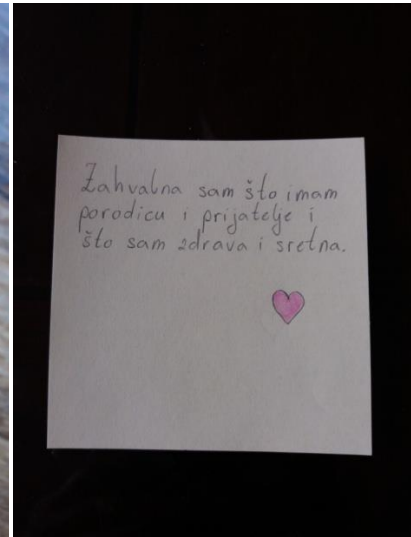 Zahvalna sam što imam
porodicu i prijatelje i
što sam zdrava i sretna.